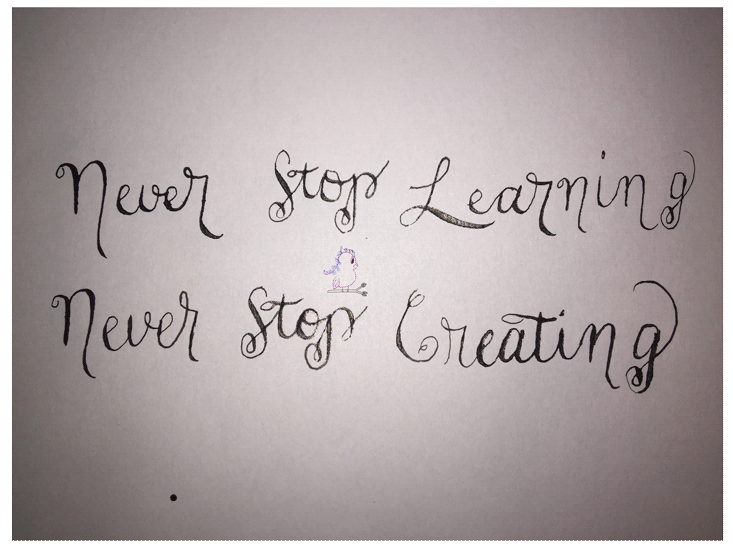 Never Stop Learning
Never Stop Creating